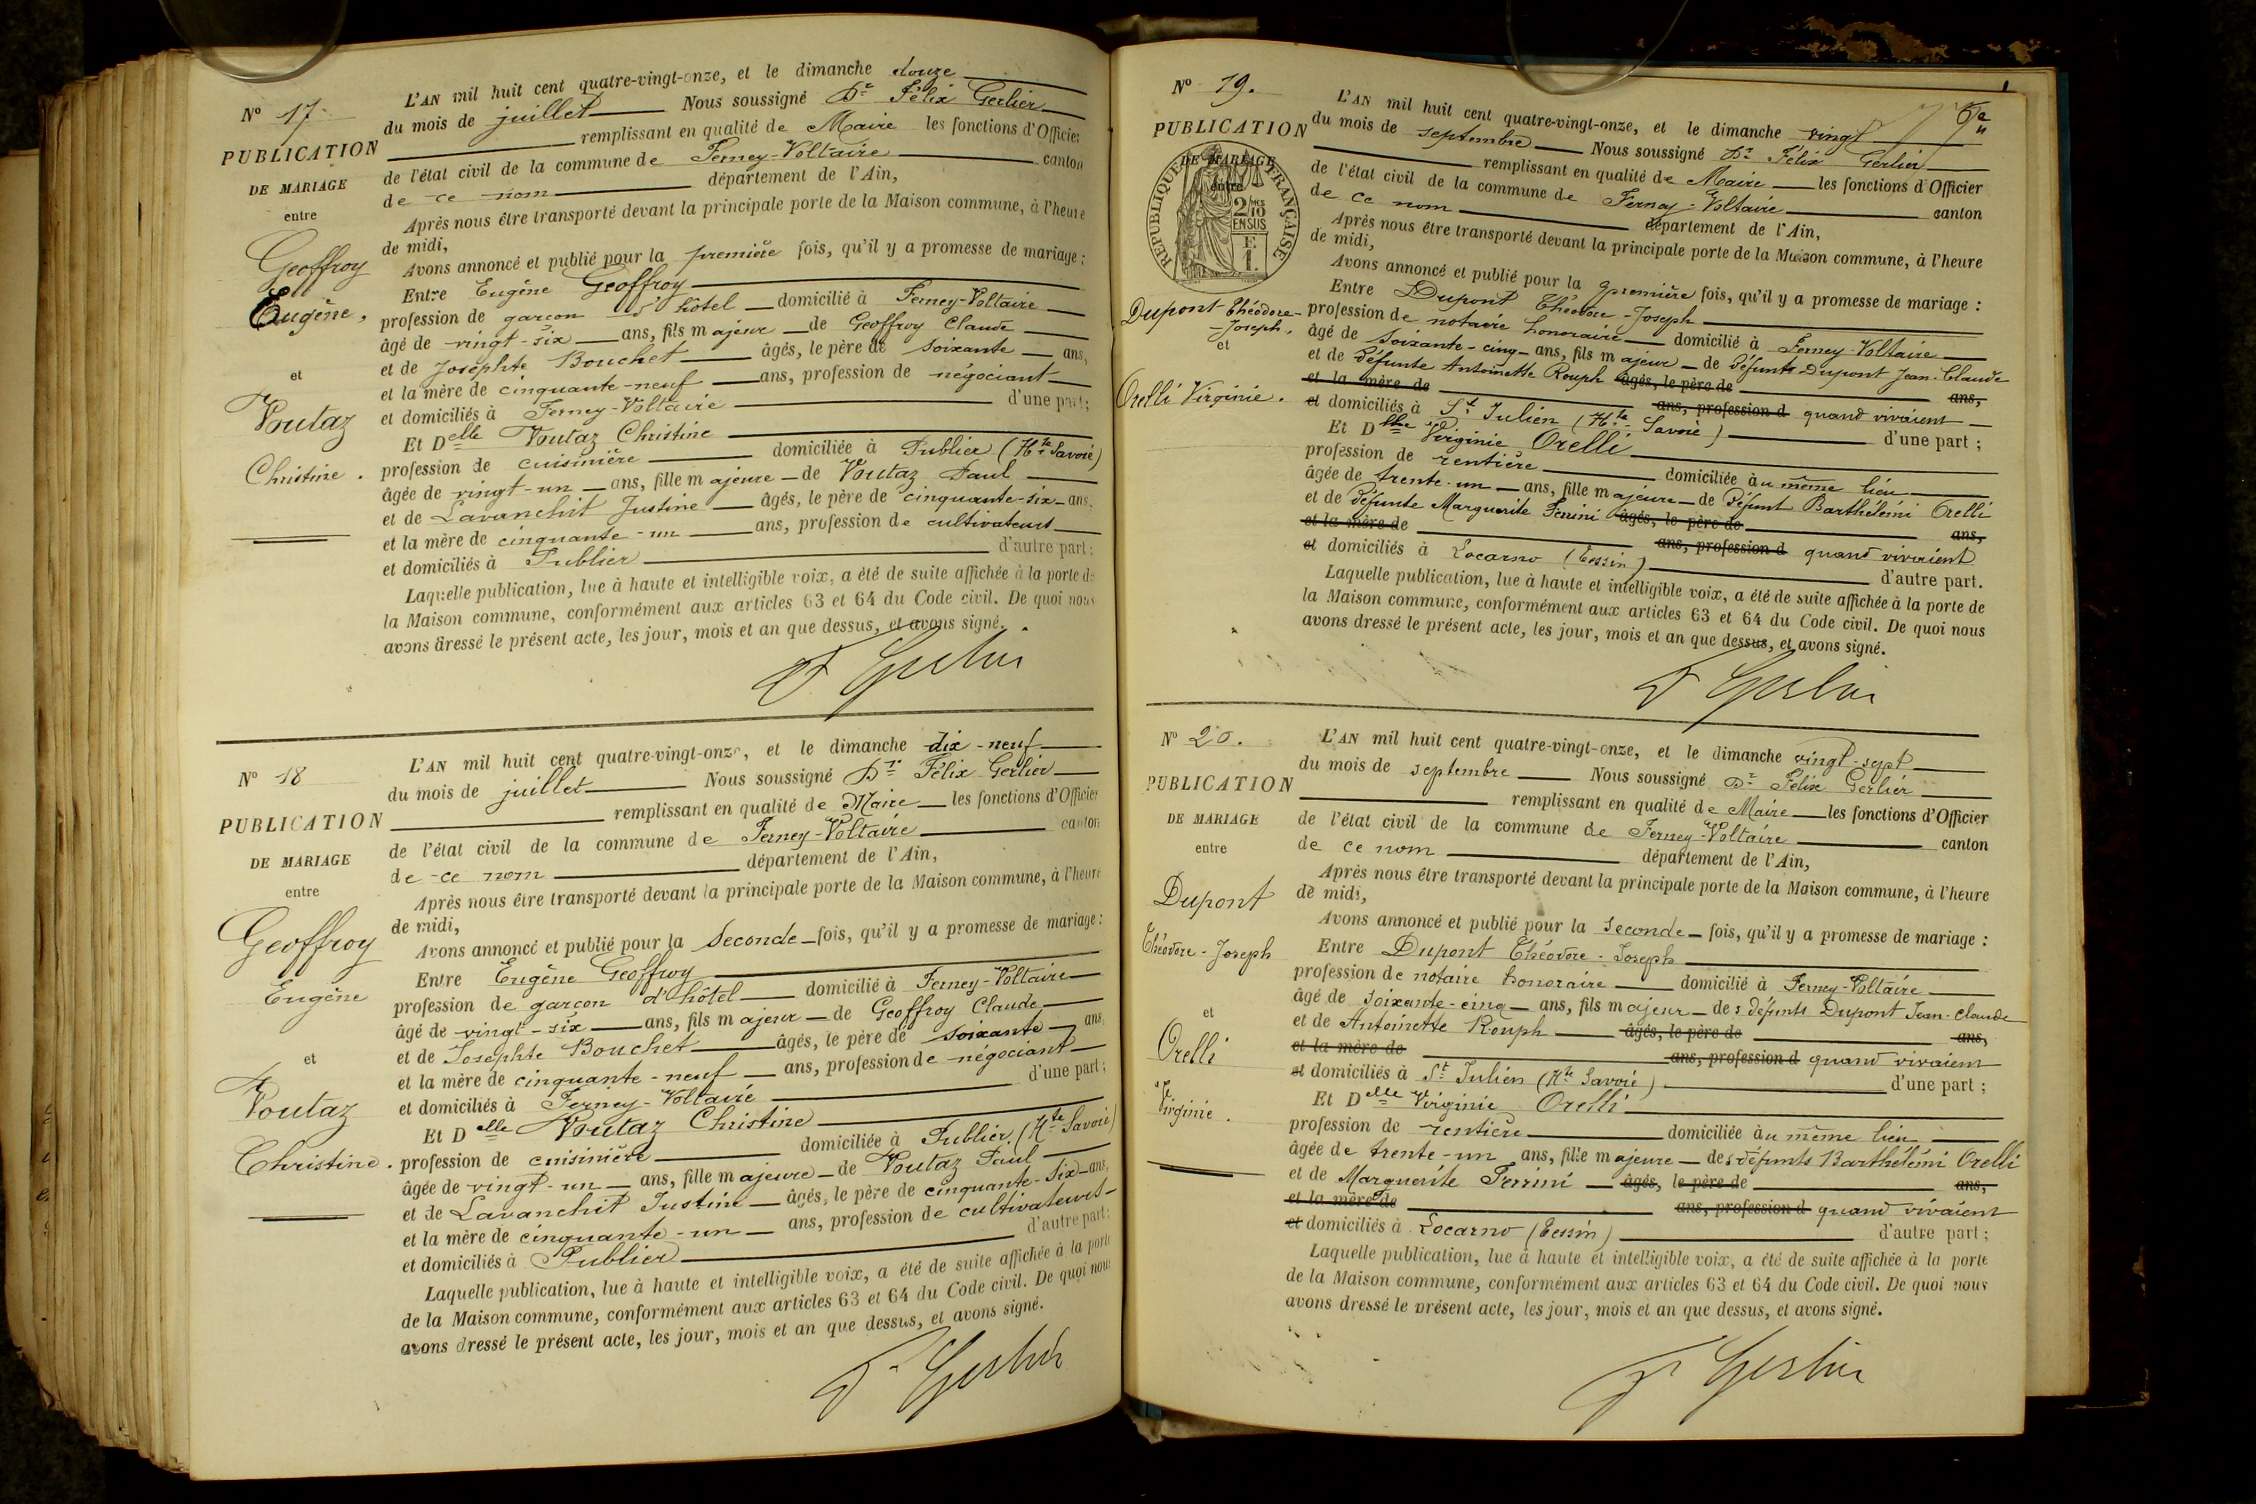 Nº 17
PUBLICATION
DE MARIAGE
entre
Geoffroy
Eugène,
et
Voutaz
Christine.
L'AN mil huit cent quatre-vingt-onze, et le dimanche douze
du mois de juillet Nous soussigné Dr Félix Gerlier
remplissant en qualité de Maire les fonctions d'Officier
de l'état civil de la commune de Ferney-Voltaire canton
de ce nom département de l'Ain,
Après nous être transporté devant la principale porte de la Maison commune, à l'heure
de midi,
Avons annoncé et publié pour la première fois, qu'il y a promesse de mariage :
Entre Eugène Geoffroy
profession de garçon d'hôtel domicilié à Ferney-Voltaire
âgé de vingt-six ans, fils majeur de Geoffroy Claude
et de Josephte Bouchet âgés, le père de soixante ans,
et la mère de cinquante-neuf ans, profession de négociant
et domiciliés à Ferney-Voltaire d'une part ;
Et Delle Voutaz Christine
profession de cuisinière domiciliée à Publier (Hte Savoie)
âgée de vingt-un ans, fille majeure de Voutaz Paul
et de Lavanchit Justine âgés, le père de cinquante-six ans,
et la mère de cinquante-un ans, profession de cultivateurs
et domiciliés à Publier d'autre part ;
Laquelle publication, lue à haute et intelligible voix, a été de suite affichée à la porte de
la Maison commune, conformément aux articles 63 et 64 du Code civil. De quoi nous
avons dressé le présent acte, les jour, mois et an que dessus, et avons signé.
Dr Gerlier
Nº 18
PUBLICATION
DE MARIAGE
entre
Geoffroy
Eugène
et
Voutaz
Christine.
L'AN mil huit cent quatre-vingt-onze, et le dimanche dix-neuf
du mois de juillet Nous soussigné Dr Félix Gerlier
remplissant en qualité de Maire les fonctions d'Officier
de l'état civil de la commune de Ferney-Voltaire canton
de ce nom département de l'Ain,
Après nous être transporté devant la principale porte de la Maison commune, à l'heure
de midi,
Avons annoncé et publié pour la seconde fois, qu'il y a promesse de mariage :
Entre Eugène Geoffroy
profession de garçon d'hôtel domicilié à Ferney-Voltaire
âgé de vingt-six ans, fils majeur de Geoffroy Claude
et de Josephte Bouchet âgés, le père de soixante ans
et la mère de cinquante-neuf ans, profession de négociant
et domiciliés à Ferney-Voltaire d'une part ;
Et Delle Voutaz Christine
profession de cuisinière domiciliée à Publier (Hte Savoie)
âgée de vingt-un ans, fille majeure de Voutaz Paul
et de Lavanchit Justine âgés, le père de cinquante-six ans,
et la mère de cinquante-un ans, profession de cultivateurs
et domiciliés à Publier d'autre part ;
Laquelle publication, lue à haute et intelligible voix, a été de suite affichée à la porte
de la Maison commune, conformément aux articles 63 et 64 du Code civil. De quoi nous
avons dressé le présent acte, les jour, mois et an que dessus, et avons signé.
Dr Gerlier
Nº 19.
PUBLICATION
DE MARIAGE
entre
RÉPUBLIQUE FRANÇAISE
2/10
EN SUS
Dupont Théodore-
Joseph,
et
Orelli Virginie.
L'AN mil huit cent quatre-vingt-onze, et le dimanche vingt
du mois de septembre Nous soussigné Dr Félix Gerlier
remplissant en qualité de Maire les fonctions d'Officier
de l'état civil de la commune de Ferney-Voltaire canton
de ce nom département de l'Ain,
Après nous être transporté devant la principale porte de la Maison commune, à l'heure
de midi,
Avons annoncé et publié pour la première fois, qu'il y a promesse de mariage :
Entre Dupont Théodore-Joseph
profession de notaire honoraire domicilié à Ferney-Voltaire
âgé de soixante-cinq ans, fils majeur de défunts Dupont Jean-Claude
et de défunte Antoinette Rouph âgés, le père de ans,
et la mère de ans, profession d quand vivaient
et domiciliés à St Julien (Hte Savoie) d'une part ;
Et Delle Virginie Orelli
profession de rentière domiciliée au même lieu
âgée de trente-un ans, fille majeure de défunt Barthélémi Orelli
et de défunte Marguerite Perrini âgés, le père de ans,
et la mère de ans, profession d quand vivaient
et domiciliés à Locarno (Tessin) d'autre part.
Laquelle publication, lue à haute et intelligible voix, a été de suite affichée à la porte de
la Maison commune, conformément aux articles 63 et 64 du Code civil. De quoi nous
avons dressé le présent acte, les jour, mois et an que dessus, et avons signé.
Dr Gerlier
Nº 20.
PUBLICATION
DE MARIAGE
entre
Dupont
Théodore-Joseph
et
Orelli
Virginie.
L'AN mil huit cent quatre-vingt-onze, et le dimanche vingt-sept
du mois de septembre Nous soussigné Dr Félix Gerlier
remplissant en qualité de Maire les fonctions d'Officier
de l'état civil de la commune de Ferney-Voltaire canton
de ce nom département de l'Ain,
Après nous être transporté devant la principale porte de la Maison commune, à l'heure
de midi,
Avons annoncé et publié pour la seconde fois, qu'il y a promesse de mariage :
Entre Dupont Théodore-Joseph
profession de notaire honoraire domicilié à Ferney-Voltaire
âgé de soixante-cinq ans, fils majeur des défunts Dupont Jean-Claude
et de Antoinette Rouph âgés, le père de ans,
et la mère de ans, profession d quand vivaient
et domiciliés à St Julien (Hte Savoie) d'une part ;
Et Delle Virginie Orelli
profession de rentière domiciliée au même lieu
âgée de trente-un ans, fille majeure des défunts Barthélémi Orelli
et de Marguerite Perrini âgés, le père de ans,
et la mère de ans, profession d quand vivaient
et domiciliés à Locarno (Tessin) d'autre part ;
Laquelle publication, lue à haute et intelligible voix, a été de suite affichée à la porte
de la Maison commune, conformément aux articles 63 et 64 du Code civil. De quoi nous
avons dressé le présent acte, les jour, mois et an que dessus, et avons signé.
Dr Gerlier